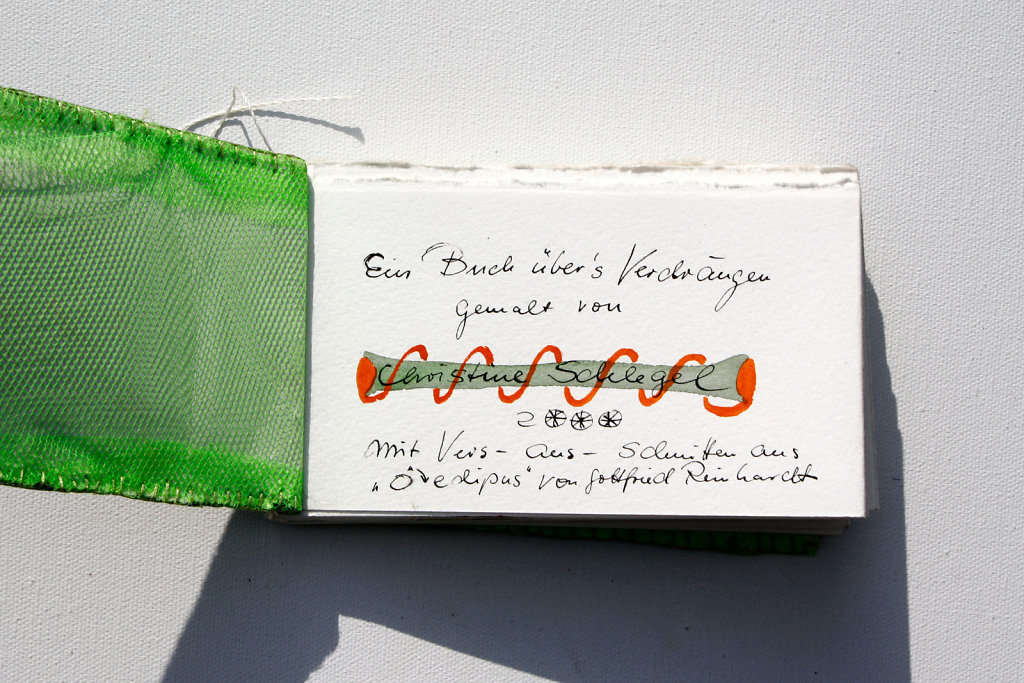 Ein Buch über's Verdrängen
gemalt von
Christine Schlegel
2000
mit Vers-aus-schnitten aus
„Ödipus" von Gottfried Reinhardt